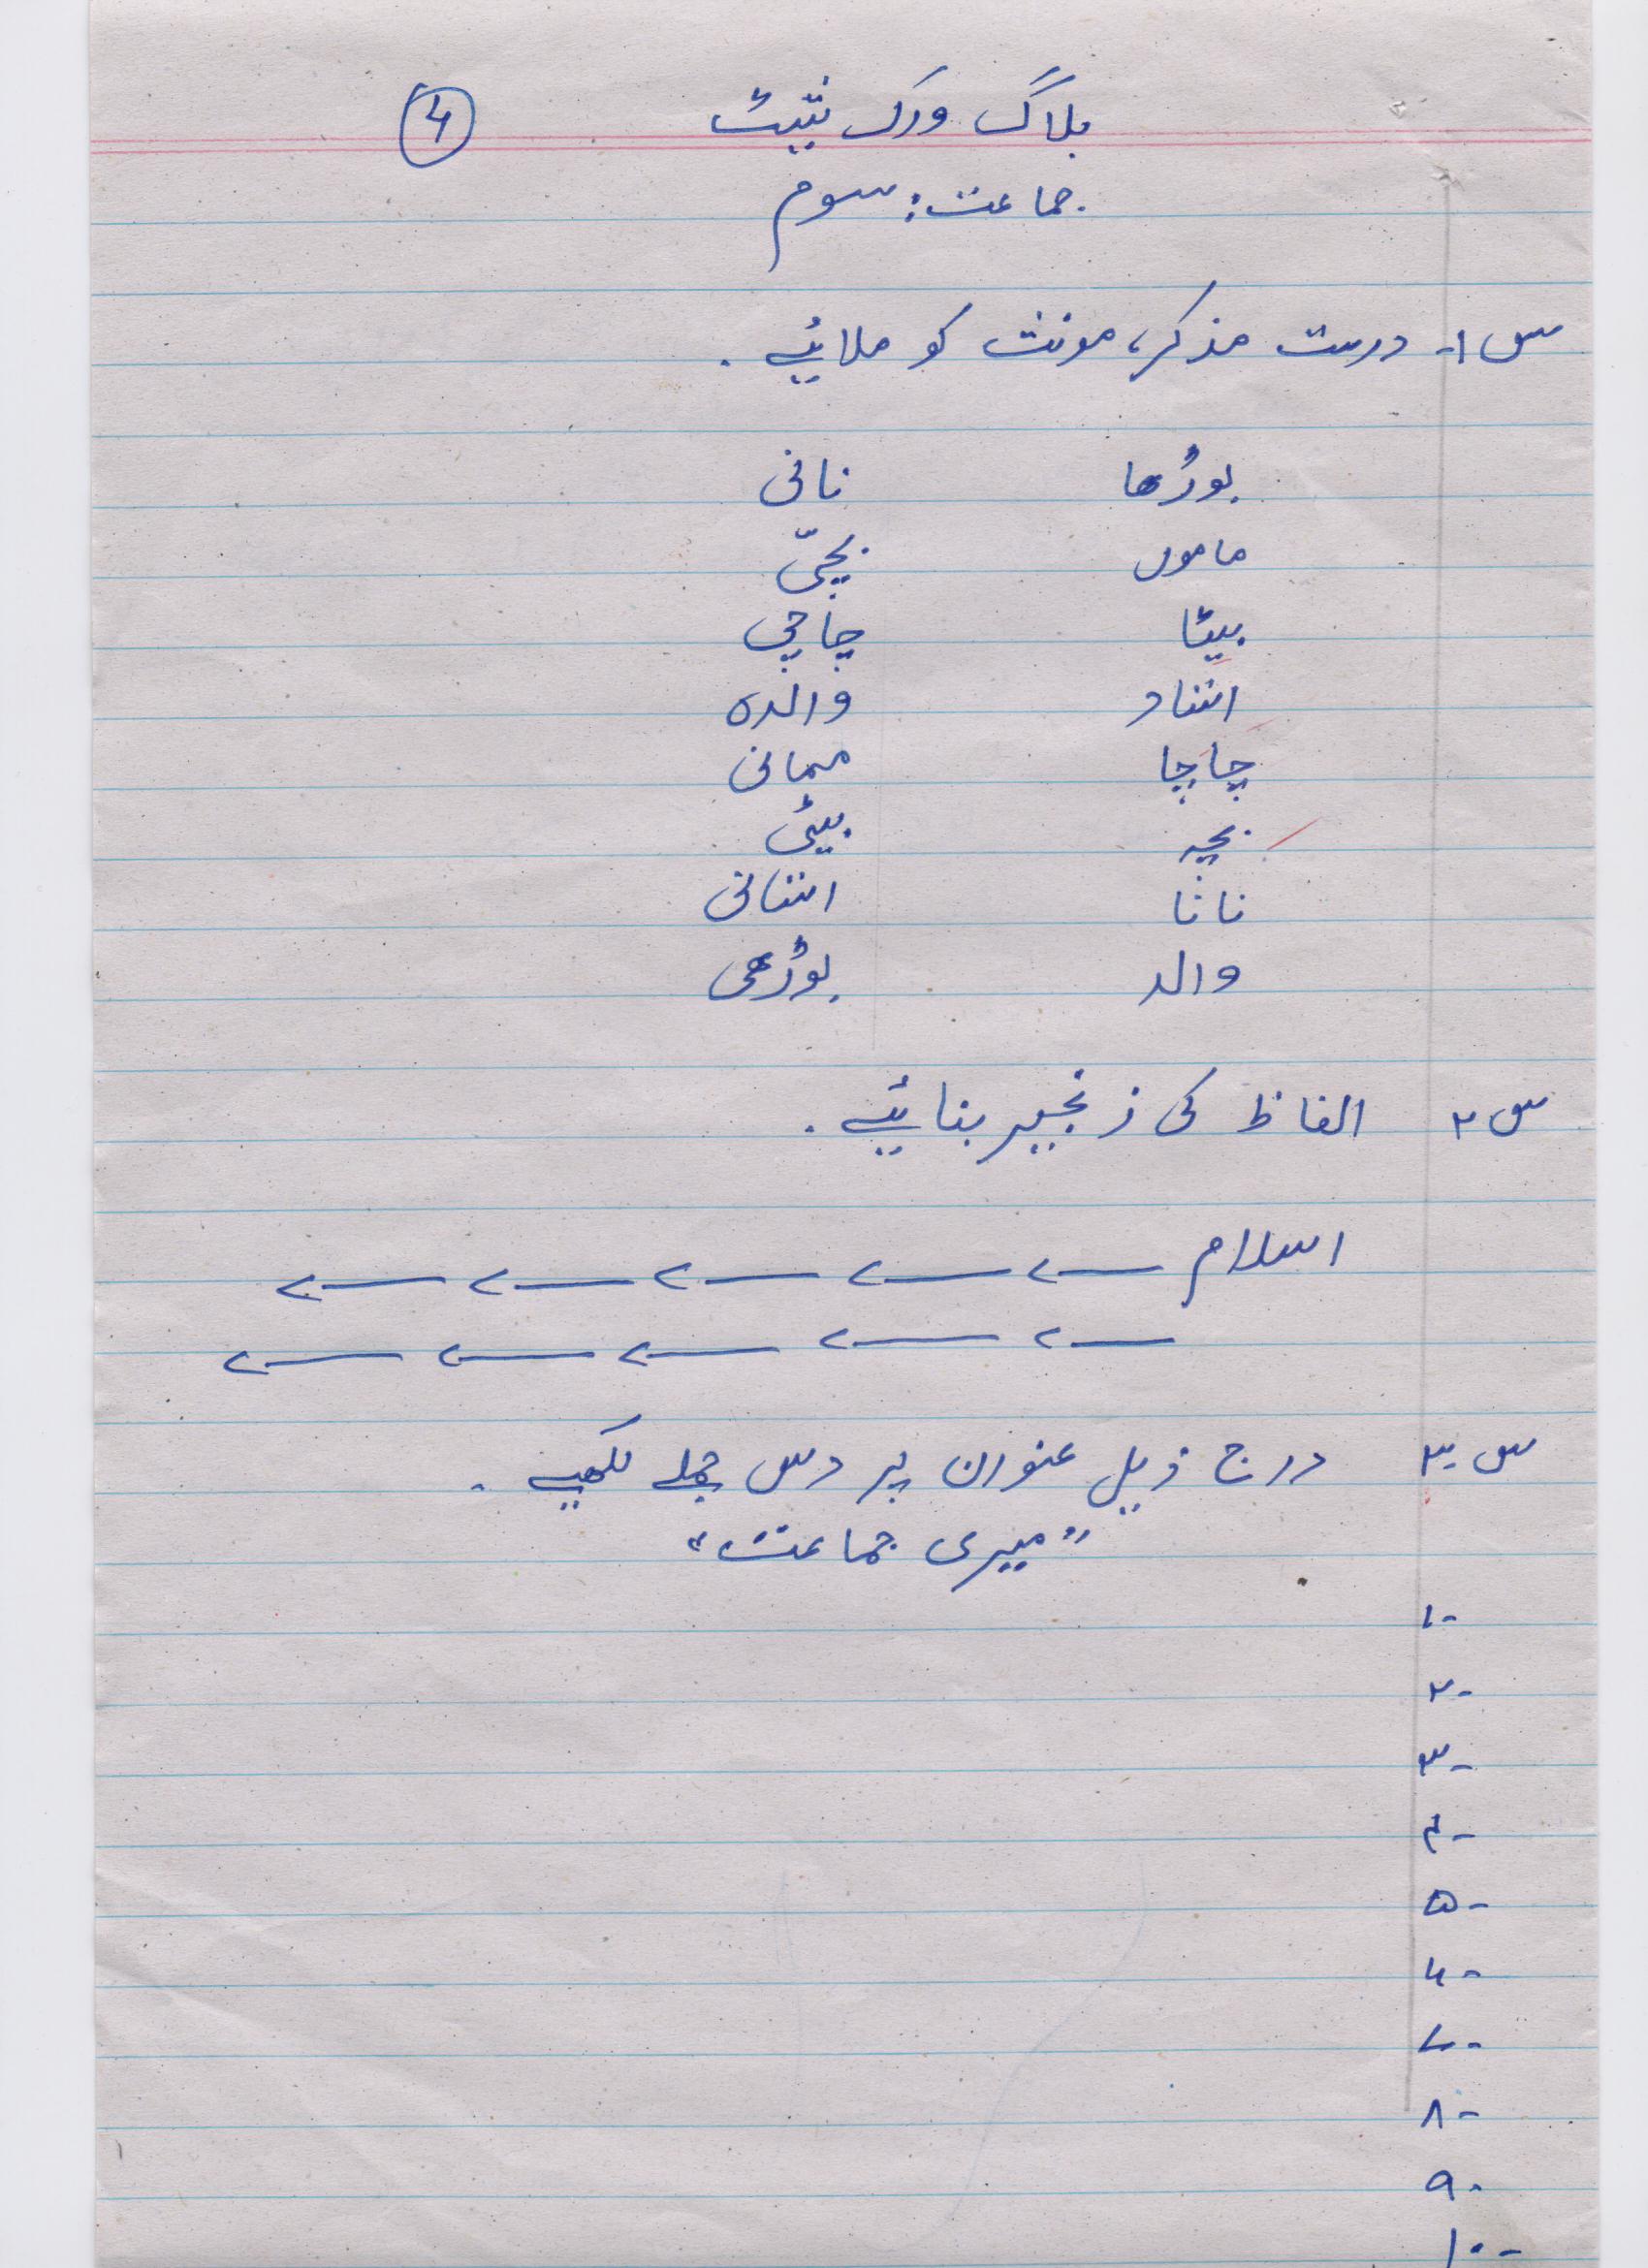 بلاگ ورک شیٹ ۴
جماعت: سوم
س ۱- درست مذکر، مونث کو ملائیے.
بوڑھا نانی
ماموں بچّی
بیٹا چاچی
استاد والدہ
چاچا ممانی
بچہ بیٹی
نانا استانی
والد بوڑھی
س ۲ الفاظ کی زنجیر بنائیے.
اسلام
س ۳- درج ذیل عنوان پر دس جملے لکھیے.
"میری جماعت"
۱-
۲-
۳-
۴-
۵-
۶-
۷-
۸-
۹-
۱۰-